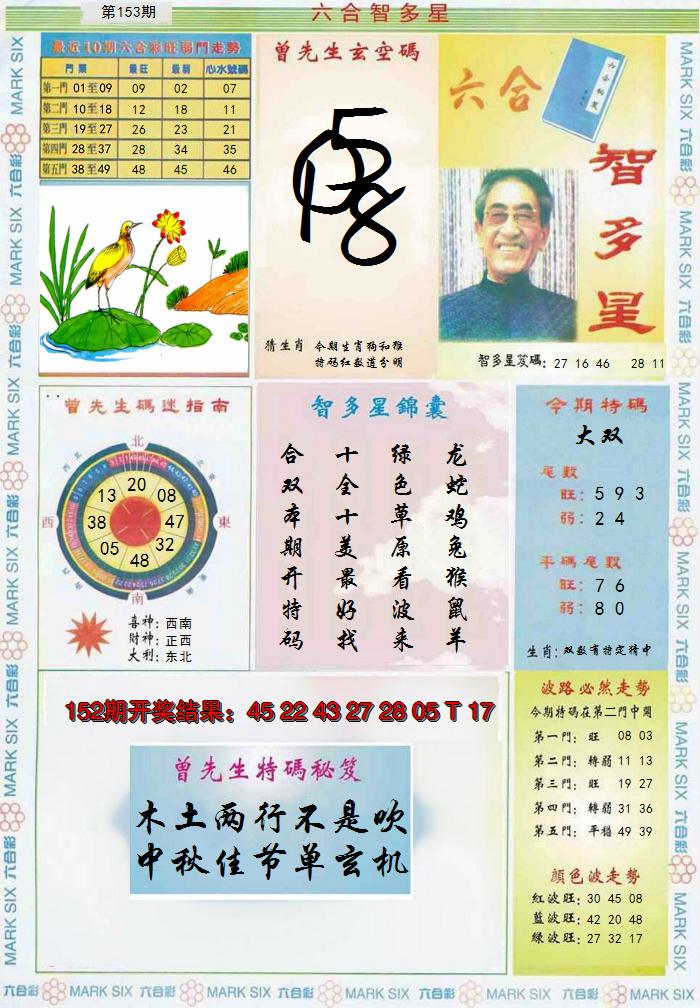 第153期
六合智多星
最近10期六合彩旺弱門走勢
門類 最旺 最弱 心水號碼
第一門 01至09 09 02 07
第二門 10至18 12 18 11
第三門 19至27 26 23 21
第四門 28至37 28 34 35
第五門 38至49 48 45 46
曾先生玄空碼
猜生肖 今期生肖狗和猴
特码红数道分明
六合
六合秘笈
智多星
智多星笈碼: 27 16 46 28 11
曾先生碼迷指南
北
西
東
南
20
13
08
38
47
05
32
48
喜神: 西南
財神: 正西
大利: 东北
智多星錦囊
龙蛇鸡兔猴鼠羊
绿色草原看波来
十全十美最好找
合双本期开特码
今期特碼
大双
尾數
旺: 5 9 3
弱: 2 4
平碼尾數
旺: 7 6
弱: 8 0
生肖: 双数有特定猜中
152期开奖结果: 45 22 43 27 28 05 T 17
曾先生特碼秘笈
木土两行不是吹
中秋佳节单玄机
波路必然走勢
今期特碼在第二門中開
第一門: 旺 08 03
第二門: 轉弱 11 13
第三門: 旺 19 27
第四門: 轉弱 31 36
第五門: 平穩 49 39
顏色波走勢
紅波旺: 30 45 08
藍波旺: 42 20 48
綠波旺: 27 32 17
MARK SIX 六合彩